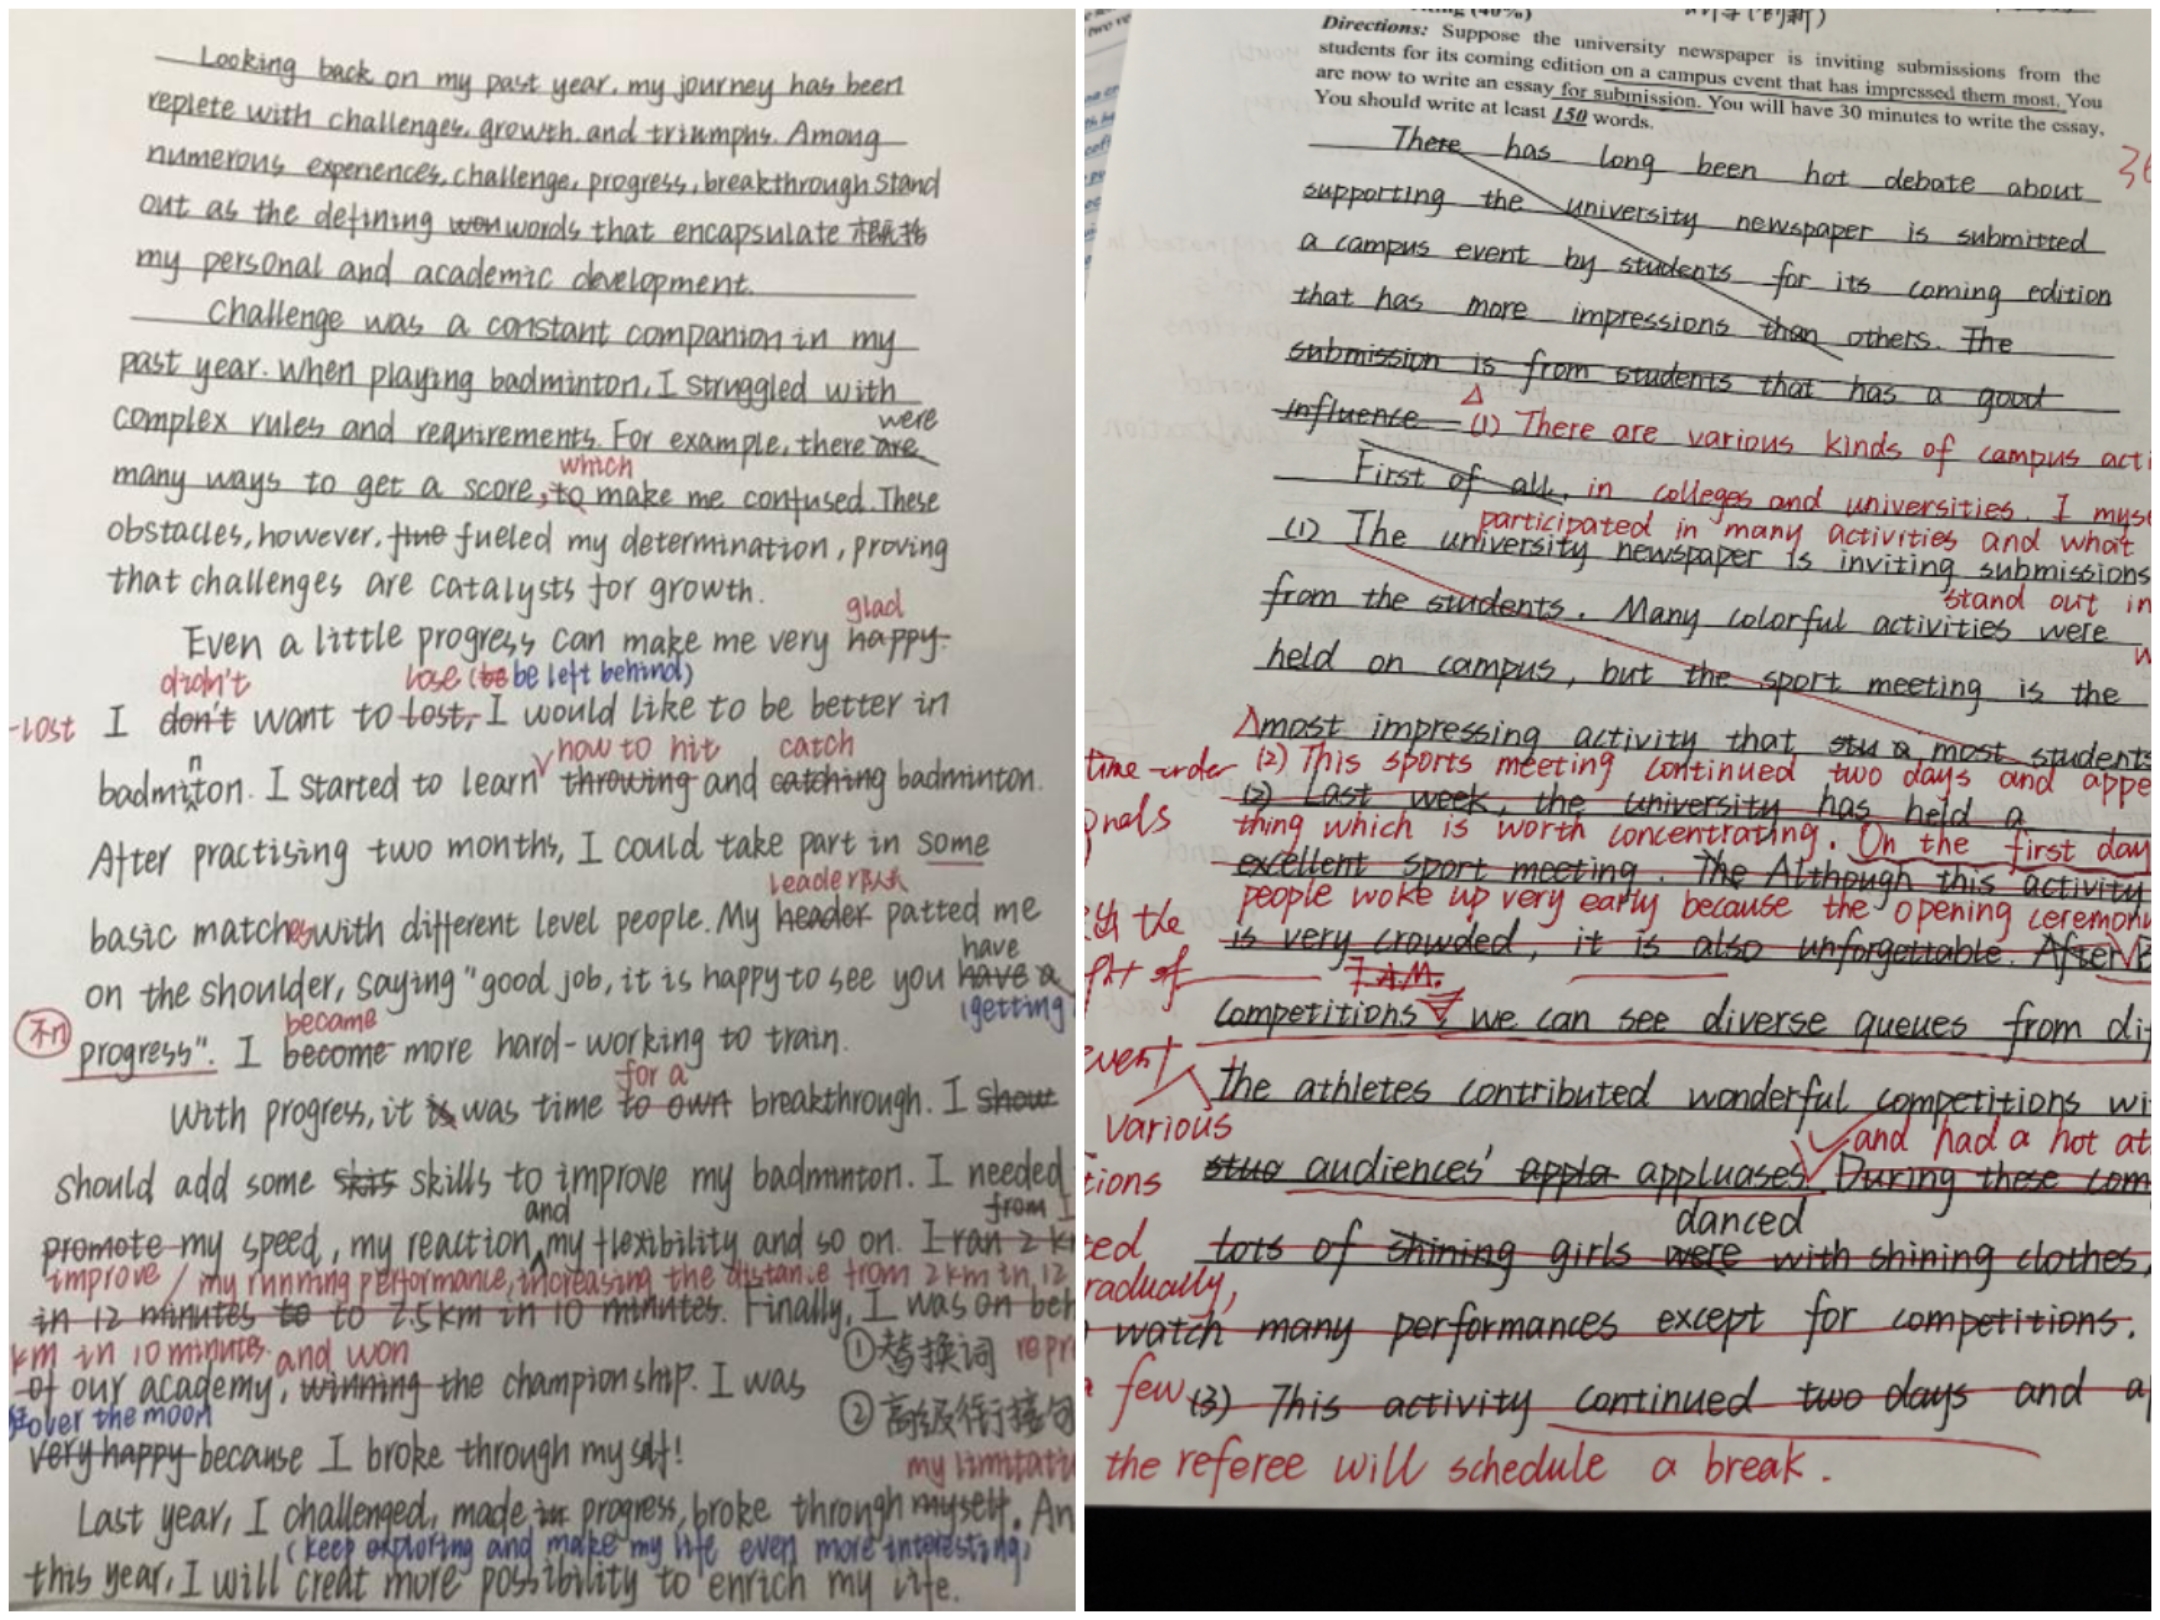 Looking back on my past year, my journey has been
replete with challenges, growth, and triumphs. Among
numerous experiences, challenge, progress, breakthrough stand
out as the defining won words that encapsulate 概括
my personal and academic development.
Challenge was a constant companion in my
past year. When playing badminton, I struggled with
were
complex rules and requirements. For example, there are
which
many ways to get a score, to make me confused. These
obstacles, however, fueled my determination, proving
that challenges are catalysts for growth.
glad
Even a little progress can make me very happy.
didn't lose (to be left behind)
-lost I don't want to lost, I would like to be better in
n how to hit catch
badmiton. I started to learn throwing and catching badminton.
After practising two months, I could take part in some
leader 队长
basic matches with different level people. My header patted me
have
on the shoulder, saying "good job, it is happy to see you have a
(getting
became
progress". I become more hard-working to train.
for a
With progress, it is was time to own breakthrough. I shout
should add some skills to improve my badminton. I needed
and from
promote my speed, my reaction, my flexibility and so on. I ran 2
improve / my running performance, increasing the distance from 2 km in 12
in 12 minutes to to 2.5km in 10 minutes. Finally, I was on
km in 10 minutes. and won ①替换词
of our academy, winning the championship. I was
over the moon ②高级衔接句
very happy because I broke through myself!
my
Last year, I challenged, made in progress, broke through myself.
(keep exploring and make my life even more interesting)
this year, I will creat more possibility to enrich my life.
(40%)
Directions: Suppose the university newspaper is inviting submissions from the
students for its coming edition on a campus event that has impressed them most. You
are now to write an essay for submission. You will have 30 minutes to write the essay.
You should write at least 150 words.
There has long been hot debate about
supporting the university newspaper is submitted
a campus event by students for its coming edition
that has more impressions than others. The
submission is from students that has a good
influence (1) There are various kinds of campus
First of all, in colleges and universities. I
participated in many activities and what
(1) The university newspaper is inviting submissions
stand out in
from the students. Many colorful activities were
held on campus, but the sport meeting is the
most impressing activity that stu a most students
time-order (2) This sports meeting continued two days and
(2) Last week, the university has held a
thing which is worth concentrating. On the first day
excellent sport meeting. The Although this activity
people woke up very early because the opening ceremony
the
is very crowded, it is also unforgettable. After
7 A.M.
competitions, we can see diverse queues from
event
the athletes contributed wonderful competitions
various
and had a hot
stud audiences' appla appluases. During these
danced
lots of shining girls were with shining clothes,
watch many performances except for competitions.
few (3) This activity continued two days and
the referee will schedule a break.